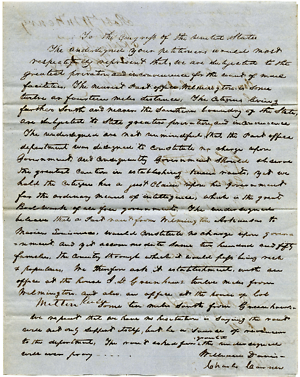 To the Congress of the United States
The undersigned your petitioners would most
respectfully represent that we are subjected to the
greatest privation and inconvenience for the want of mail
facilities. The nearest Post office Wilmington is some
twelve or fourteen miles distance. The Citizens living
further South and nearer the Southern boundary of the State,
are subjected to State greater privation, and inconvenience.
The undersigned are not unmindful that the Post office
department was designed to constitute no charge upon
Government, and consequently Government should observe
the greatest caution in establishing mail routes. Yet we
hold the Citizen has a just Claim upon the Government
for the ordinary means of intelligence, which is the great
bulwark of our free government. The undersigned
believe that a Post route from Wilmington Arkansas to
Marion Louisiana would constitute no charge upon govern
ment and yet accommodate some two hundred and fifty
families, the country through which it would pass being rich
& populous. We therefore ask its establishment, with an
office at the house of D Greenhaw twelve miles from
Wilmington and also an office at the house of
ten miles South from Greenhaw's
We repeat that we have no hesitation in saying that the route
would not only defray itself, but be a source of revenue
to the department. The route asked for is the undersigned
will ever pray
William
Charles